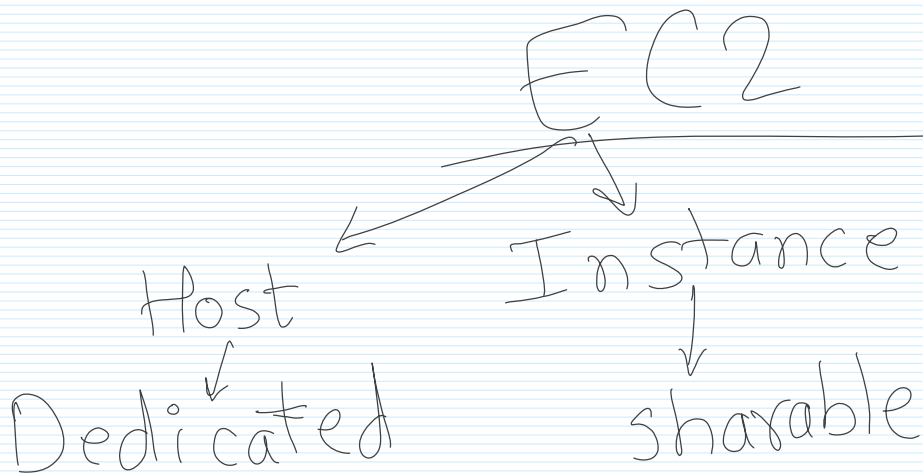 EC2
Host Instance
Dedicated sharable